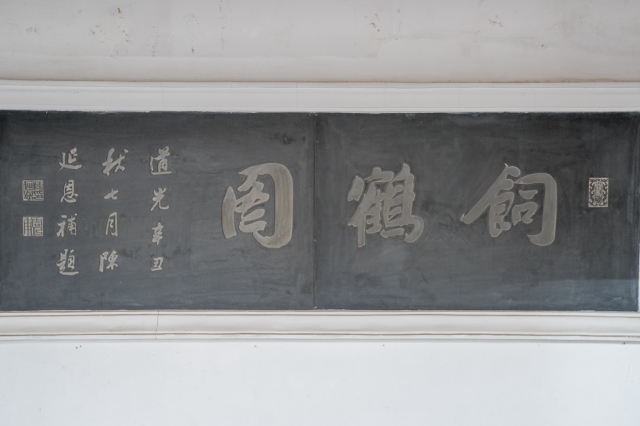 飼鶴圖
道光辛丑
秋七月陳
延恩補題